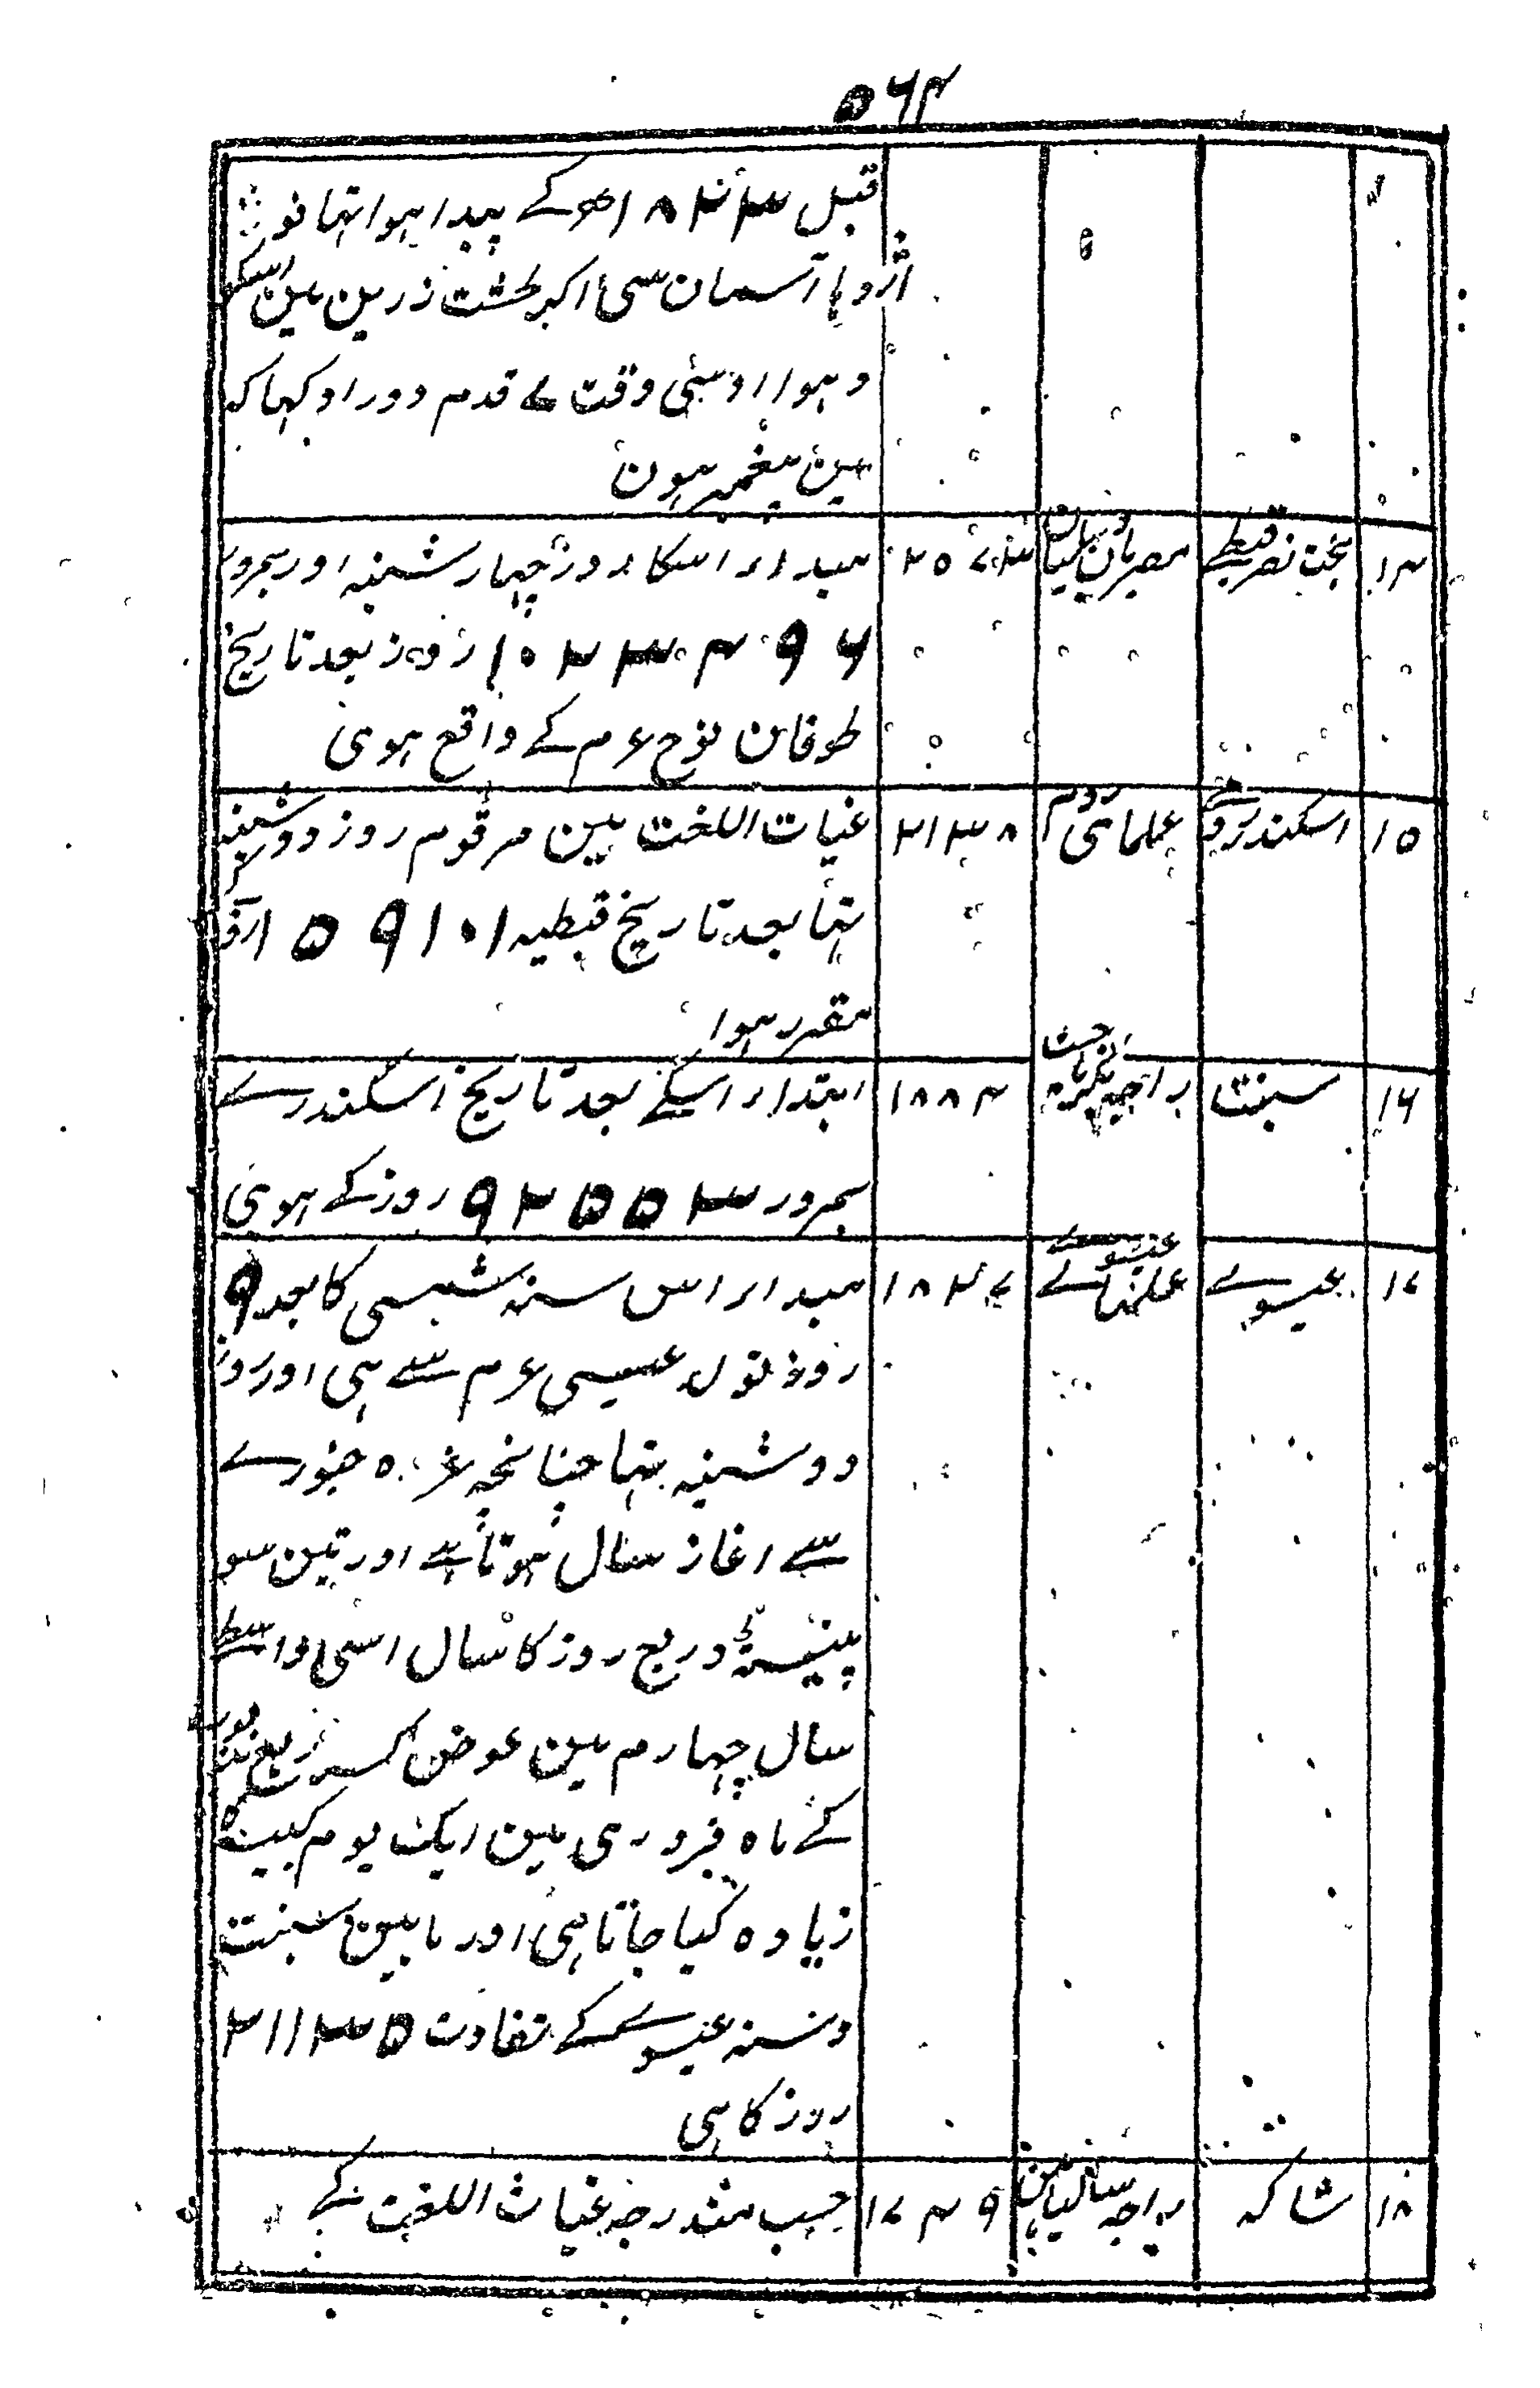 ۵۶۴
قبل ۱۸۲۳ کے پیدا ہوا تہا نو
اژدہا آسمان سی اکر طشت زرین مین
و ہوا اوسی وقت قدم دورا و کہا کہ
مین پیغمبر ہون
۱۴ بخت نصر قبطے مصریان ۲۵۷۳ مبداء اسکا روز چہار شنبہ اور بمرور
۱۰۲۳۴۹۶ روز بعد تاریخ
طوفان نوح ع م کے واقع ہوی
۱۵ اسکندری علمای روم ۲۱۳۸ غیات اللغت مین مرقوم روز دوشنبہ
تہا بعد تاریخ قبطیہ ۱۵۹۱۰۱
مقرر ہوا
۱۶ سبنت راجہ بکرماجیت ۱۸۸۴ ابتداء اسکے بعد تاریخ اسکندرے
بمرور ۹۲۵۵۳ روز کے ہوی
۱۷ عیسوے علمای عیسوے ۱۸۲۷ مبداء اس سنہ شمسی کا بعد ۹
روز تولد عیسی ع م سے ہی اور روز
دوشنبہ تہا چنانچہ غرہ جنورے
سے اغاز سال ہوتا ہے اور تین سو
پینسٹہ و ربع روز کا سال اسی واسطے
سال چہارم مین عوض کسر ربع
کے ماہ فروری مین ایک یوم کبیسہ
زیادہ کیا جاتا ہی اور مابین سبنت
و سنہ عیسوے کے تفاوت ۲۱۱۳۵
روز کا ہی
۱۸ شاکہ راجہ سالباہن ۱۷۴۹ حسب مندرجہ غیاث اللغت کے